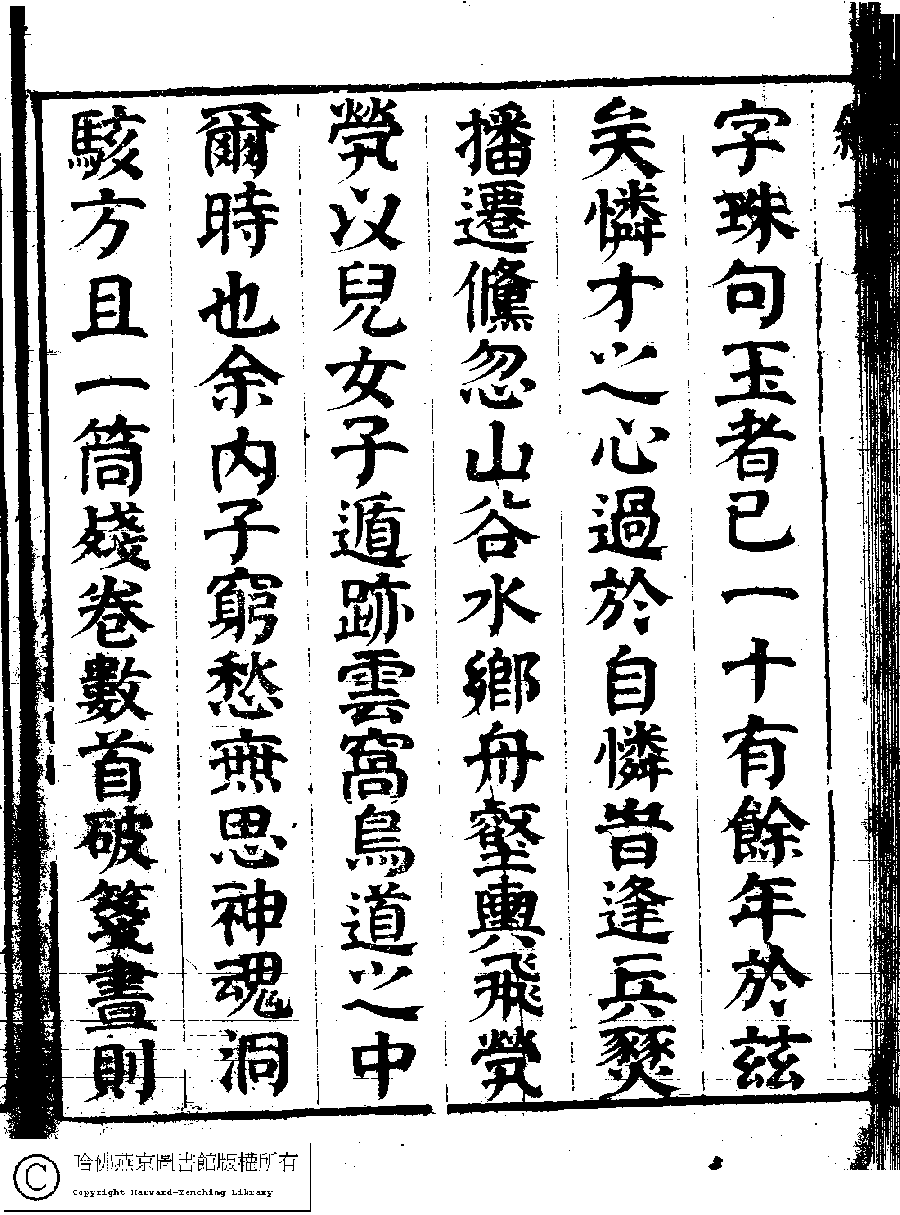 字珠句玉者已一十有餘年於茲
矣憐才之心過於自憐昔逢兵燹
播遷儵忽山谷水鄉舟壑輿飛煢
煢以兒女子遁跡雲窩鳥道之中
爾時也余內子窮愁無思神魂洞
駭方且一筒殘卷數首破箋晝則
哈佛燕京圖書館版權所有
Copyright Harvard-Yenching Library